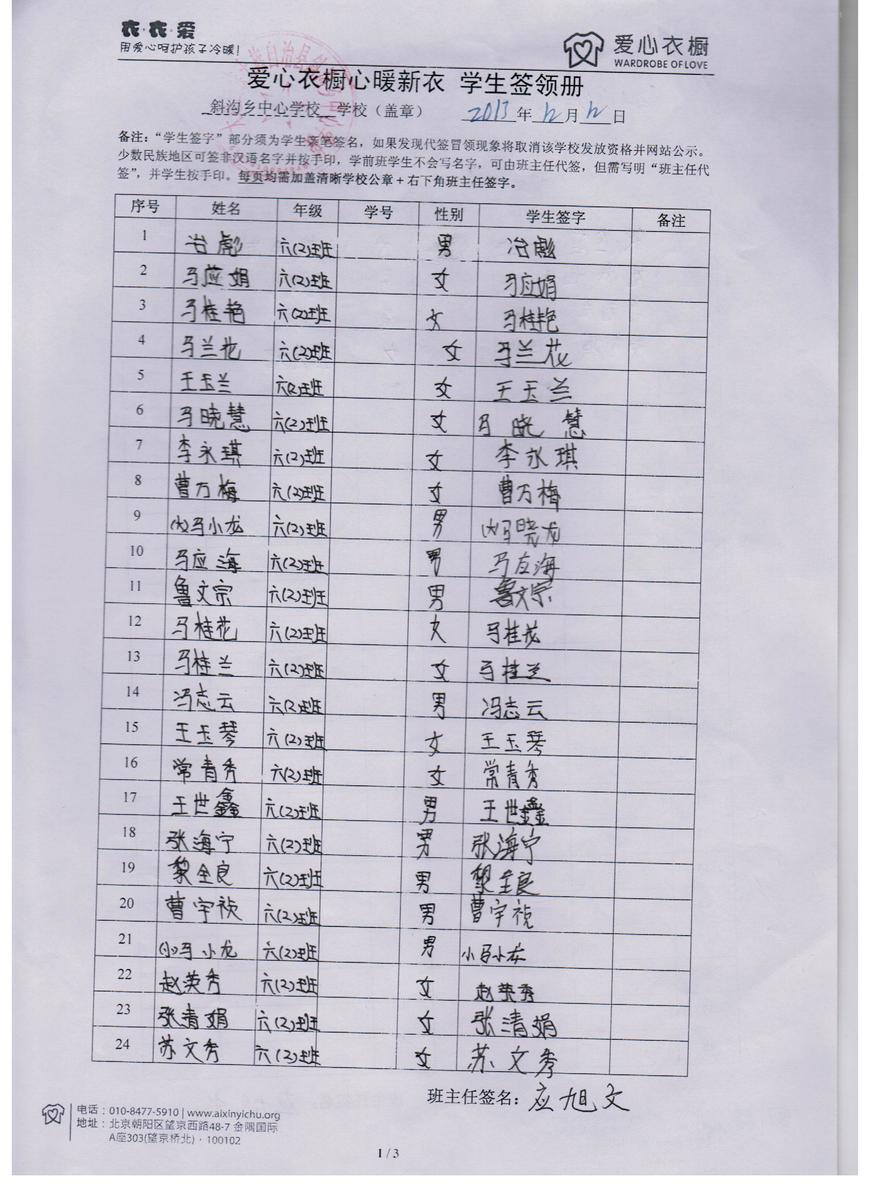 衣·衣·爱
用爱心呵护孩子冷暖!
爱心衣橱
WARDROBE OF LOVE
爱心衣橱心暖新衣 学生签领册
斜沟乡中心学校 学校（盖章） 2013年12月12日
备注：“学生签字”部分须为学生亲笔签名，如果发现代签冒领现象将取消该学校发放资格并网站公示。
少数民族地区可签非汉语名字并按手印，学前班学生不会写名字，可由班主任代签，但需写明“班主任代
签”，并学生按手印。每页均需加盖清晰学校公章+右下角班主任签字。
序号 姓名 年级 学号 性别 学生签字 备注
1 冶彪 六(2)班 男 冶彪
2 马应娟 六(2)班 女 马应娟
3 马桂艳 六(2)班 女 马桂艳
4 马兰花 六(2)班 女 马兰花
5 王玉兰 六2班 女 王玉兰
6 马晓慧 六(2)班 女 马晓慧
7 李永琪 六(2)班 女 李永琪
8 曹万梅 六(2)班 女 曹万梅
9 (大)马小龙 六(2)班 男 马晓龙
10 马应海 六(2)班 男 马应海
11 鲁文宗 六(2)班 男 鲁文宗
12 马桂花 六(2)班 女 马桂花
13 马桂兰 六(2)班 女 马桂兰
14 冯志云 六(2)班 男 冯志云
15 王玉琴 六(2)班 女 王玉琴
16 常青秀 六(2)班 女 常青秀
17 王世鑫 六(2)班 男 王世鑫
18 张海宁 六(2)班 男 张海宁
19 黎全良 六(2)班 男 黎全良
20 曹宇祯 六(2)班 男 曹宇祯
21 (小)马小龙 六(2)班 男 小马小龙
22 赵英秀 六(2)班 女 赵英秀
23 张清娟 六(2)班 女 张清娟
24 苏文秀 六(2)班 女 苏文秀
班主任签名：应旭文
电话：010-8477-5910 | www.aixinyichu.org
地址：北京朝阳区望京西路48-7 金隅国际
A座303(望京桥北)·100102
1 / 3